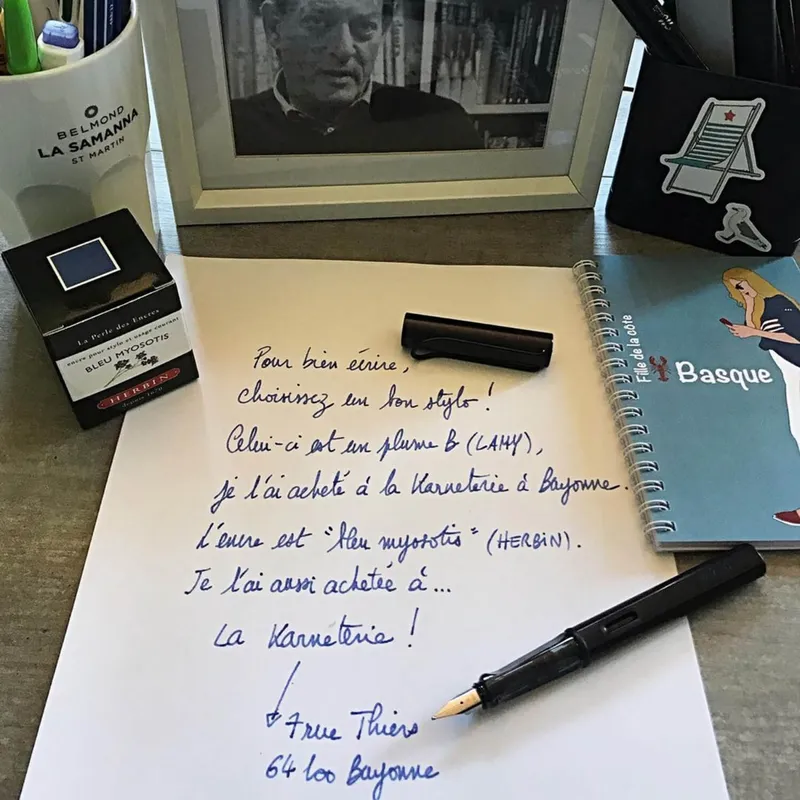 BELMOND
LA SAMANNA
ST MARTIN
La Perle des Encres
encre pour stylo et usage courant
BLEU MYOSOTIS
HERBIN
Depuis 1670
Fille de la côte
Basque
Pour bien écrire,
choisissez un bon stylo !
Celui-ci est un plume B (LAMY),
je l'ai acheté à la Karneterie à Bayonne.
L'encre est "bleu myosotis" (HERBIN).
Je l'ai aussi achetée à...
La Karneterie !
7 rue Thiers
64100 Bayonne